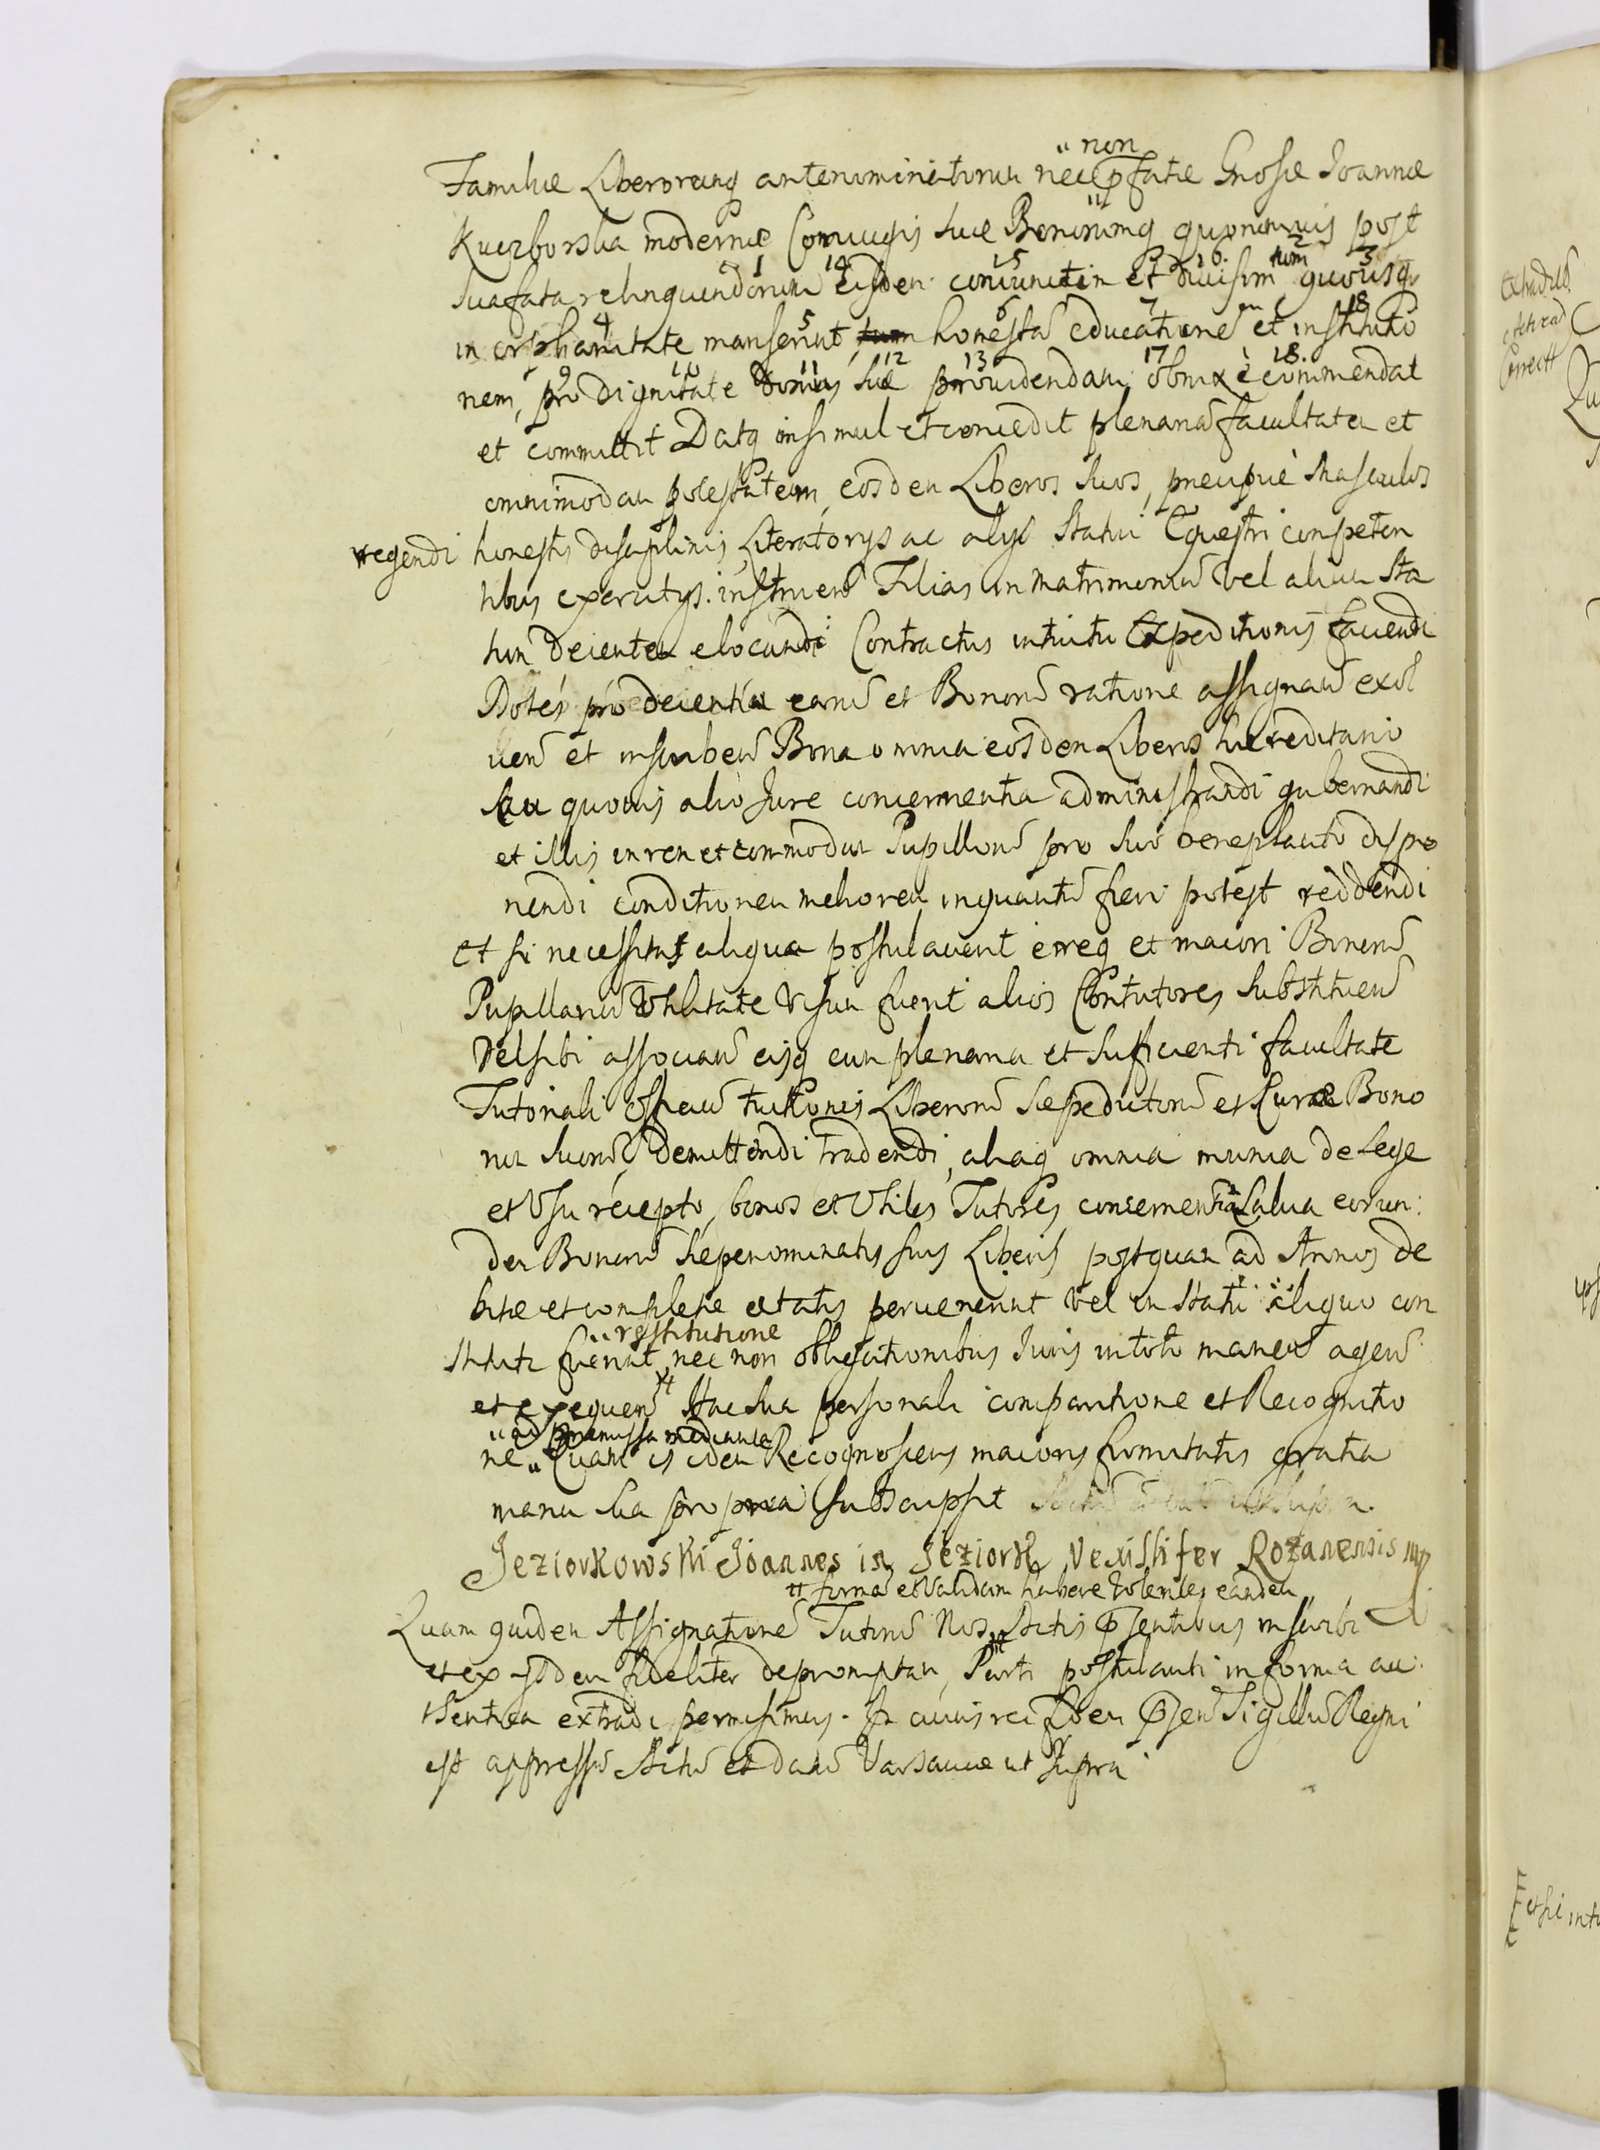 non
Familiæ Liberorumq antenominatorum nec pfatæ Gnosæ Joannæ
Kuczborska modernæ Coniugis suæ Bonorumq quorumuis post
sua fata relinquendorum eisdem coniunctim et diuisim tum quousq
in orphanitate manserint honestā educationē et institutio
nem, pro dignitate Domus suæ prouidendam obnixè commendat
et committit Datq insimul et concedit plenariā facultatem et
omnimodam potestatem, eosdem Liberos suos, præcipuè Masculos
regendi honestis disciplinis Literatorys ac alys Statui Equestri competen
tibus exercitys instruen Filias in matrimoniū vel alium Sta
tum decenter elocandi Contractus intuitu Expeditionis faciendi
Dotes pro decentia earū et Bonorū ratione assignan exol
uen et inscriben Bona omnia eosdem Liberos hæreditario
seu quouis alio Jure concernentia administrandi gubernandi
et illis in rem et commodum Pupillorū pro suo beneplacito dispo
nendi conditionem meliorem inquantū fieri potest reddendi
et si necessitas aliqua postulauerit ereq et maiori Bonorū
Pupillariū Vtilitate Visum fuerit alios Contutores substituen
Vel sibi associan eisq cum plenaria et sufficienti facultate
Tutoriali officiū tuitionis Liberorū sæpedictorū et Curæ Bono
rum suorū demittendi tradendi, aliaq omnia munia de Lege
et Vsu recepto, bonos et Vtiles Tutores concernentia Salua eorun
dem Bonorū sæpenominatis suis Liberis postquam ad Annos de
bitæ et completæ ætatis peruenerint vel in Statu aliquo con
restitutione
stituti fuerint, nec non obligationibus Juris in toto manen agen
et exequen Hac sua personali comparitione et Recognitio
ad præmissa mediante
ne Quam is idem Recognoscens maioris firmitatis gratia
manu sua propria subscripsit
Jeziorkowski Joannes in Jeziorki Vexillifer Rożanensis mp
firmā et Validam habere Volentes eandem
Quam quidem Assignationē Tutorū Nos Actis psentibus inscribi
et ex ysdem fideliter depromptam, Parti postulanti in forma au
thentica extradi permisimus. In cuius rei fidem psen Sigillū Regni
est appressū Actū et datū Varsauiæ ut supra